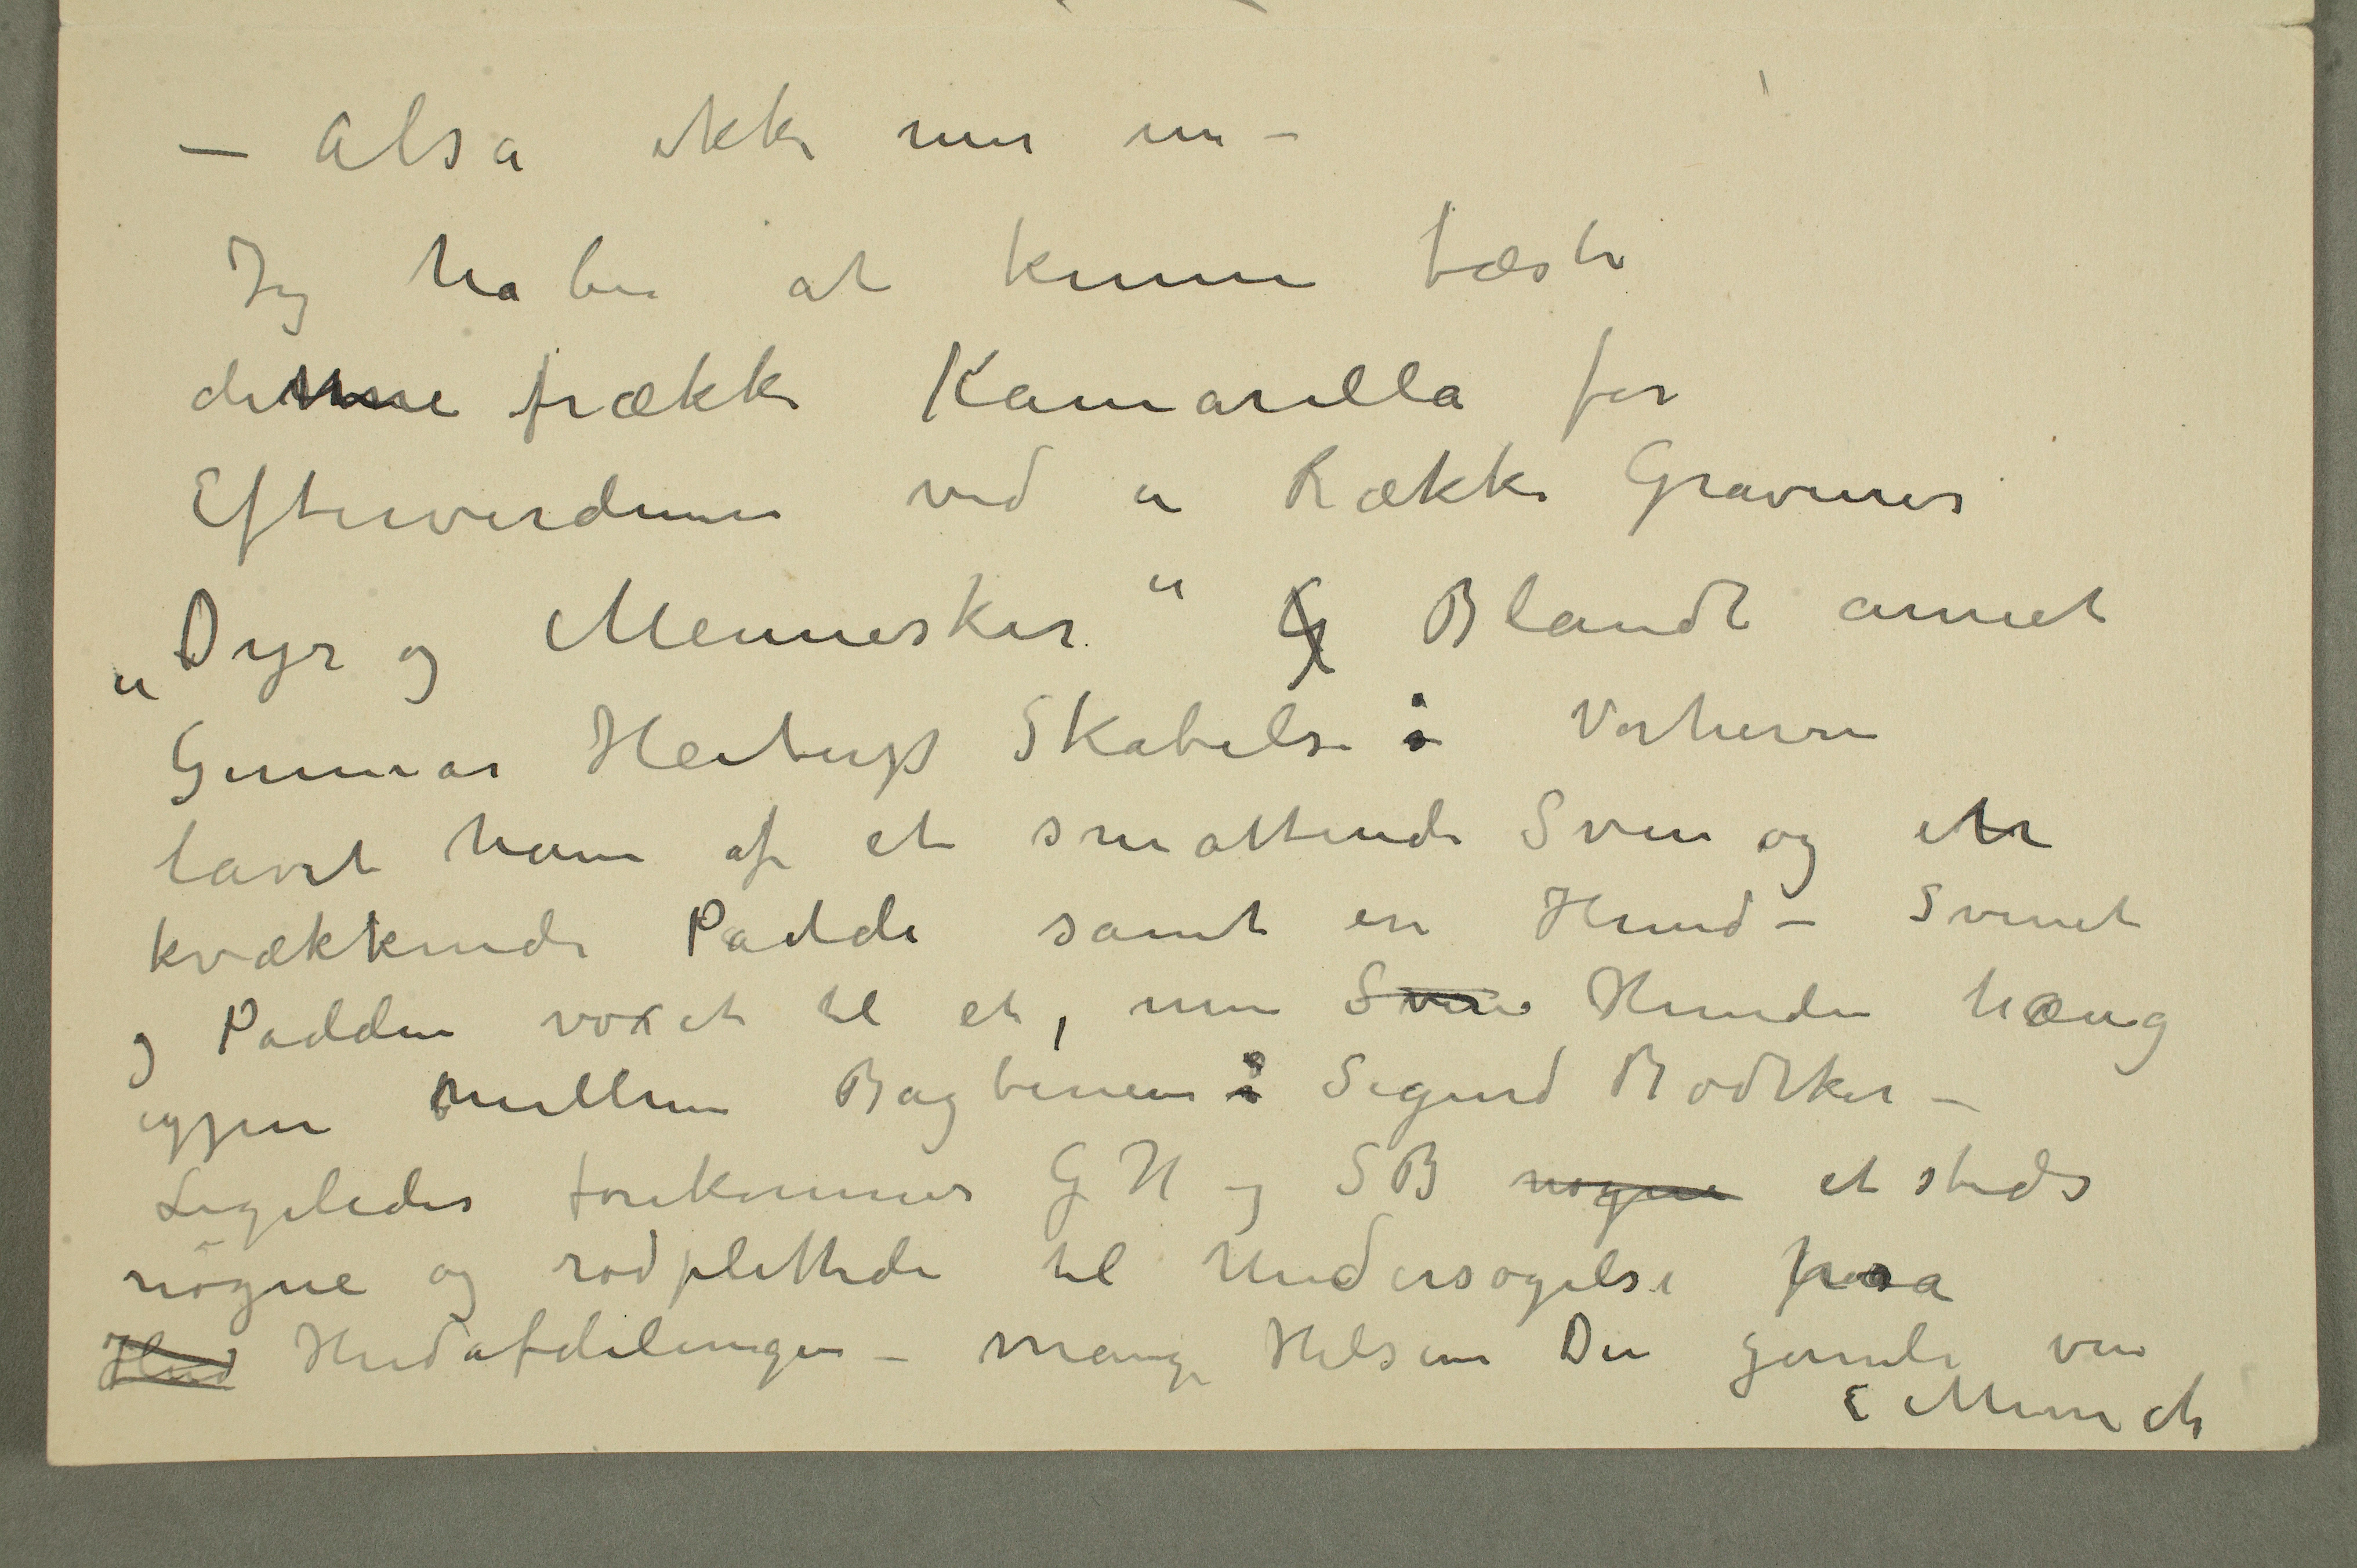 – Alså ikke mer nu –
Jeg håber at kunne fæste
denne frække Kamarilla for
Efterverdenen ved en Række Gravurer
„Dyr og Mennesker“ G Blandt annet
Gunnar Heibergs Skabelse: Vorherre
lavet ham af et smattende Svin og en
kvækkende Padde samt en Hund – Svinet
og Padden voxet til et, men Svine Hunden hæng
igjen mellem Bagbenene: Sigurd Bødtker –
Ligeledes forekommer GH og SB nøgne etsteds
nøgne og rødplettede til Undersøgelse på
Hud Hudafdelingen – Mange Hilsener Din gamle ven
E Munch